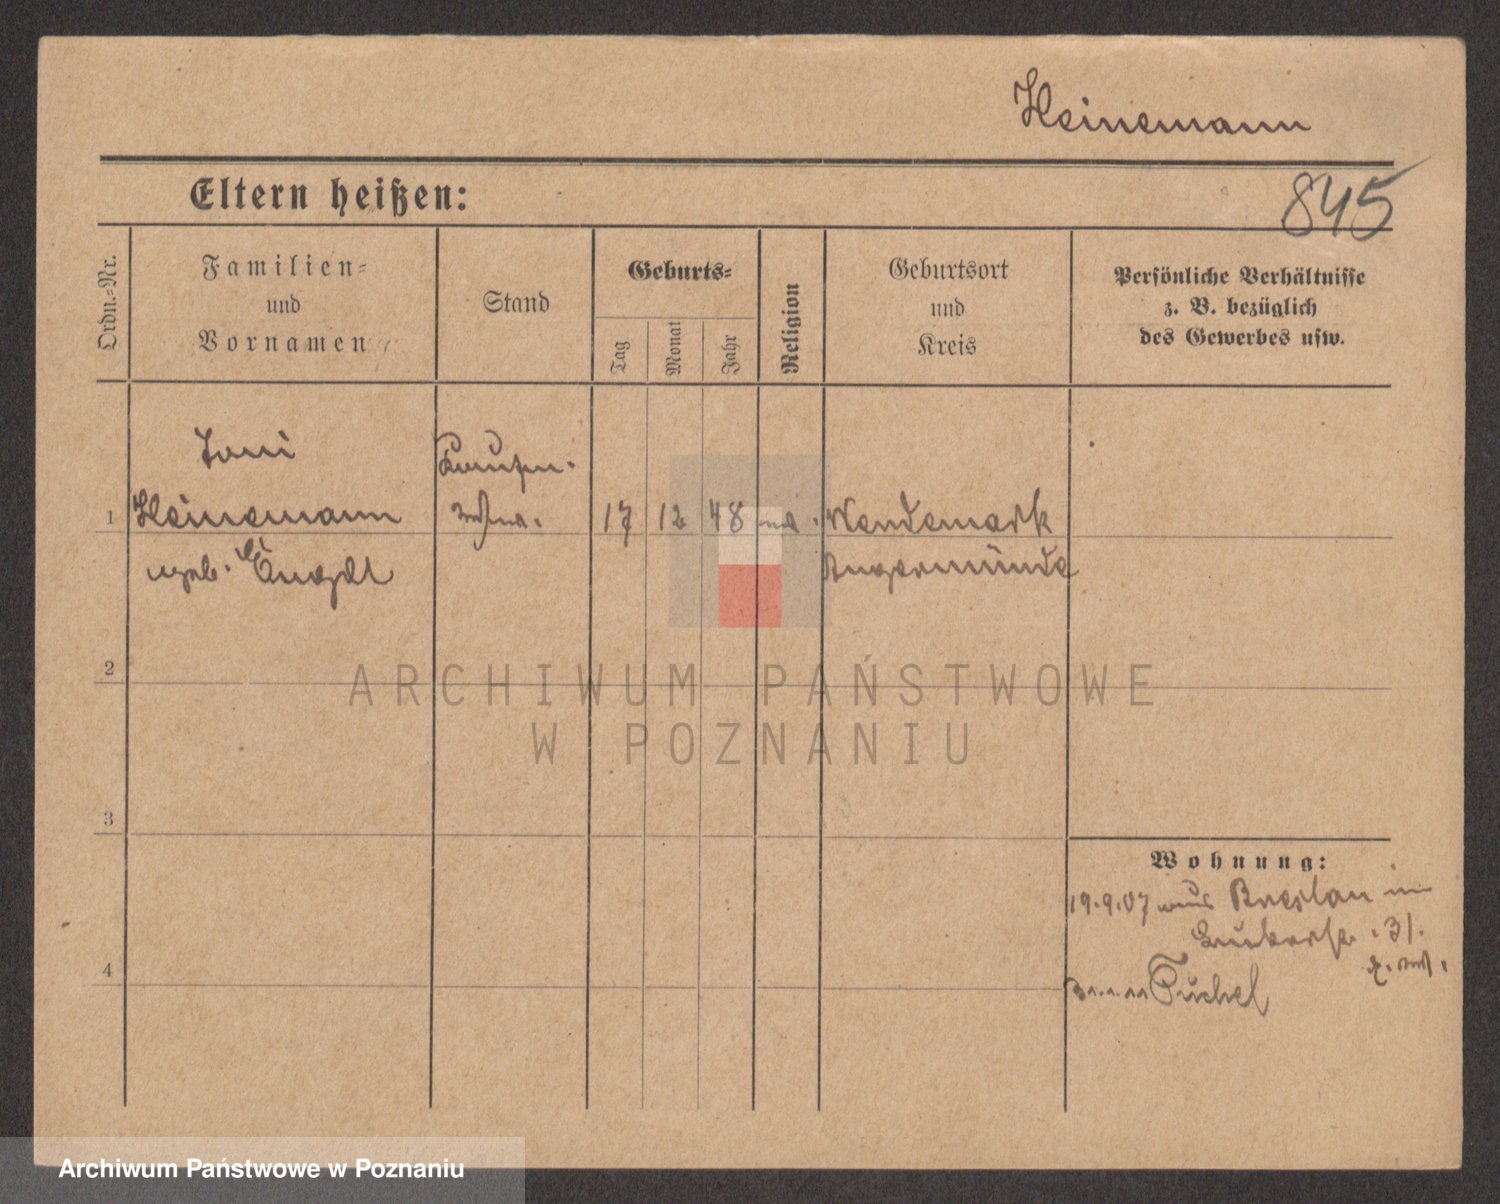 Heinemann
845
Eltern heißen:
Ordn.-Nr.
Familien-
und
Vornamen
Stand
Geburts-
Tag
Monat
Jahr
Religion
Geburtsort
und
Kreis
Persönliche Verhältnisse
z. B. bezüglich
des Gewerbes usw.
Toni
Kaufm.
1 Heinemann 17 12 48 Wendemark
geb. Engel Angermünde
2
ARCHIWUM PAŃSTWOWE
W POZNANIU
3
Wohnung:
19.9.07 aus Breslau in
31.
4
Tuchel
Archiwum Państwowe w Poznaniu